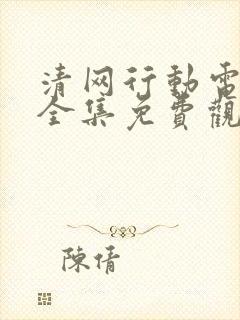 清网行動電
全集免費觀
陳倩